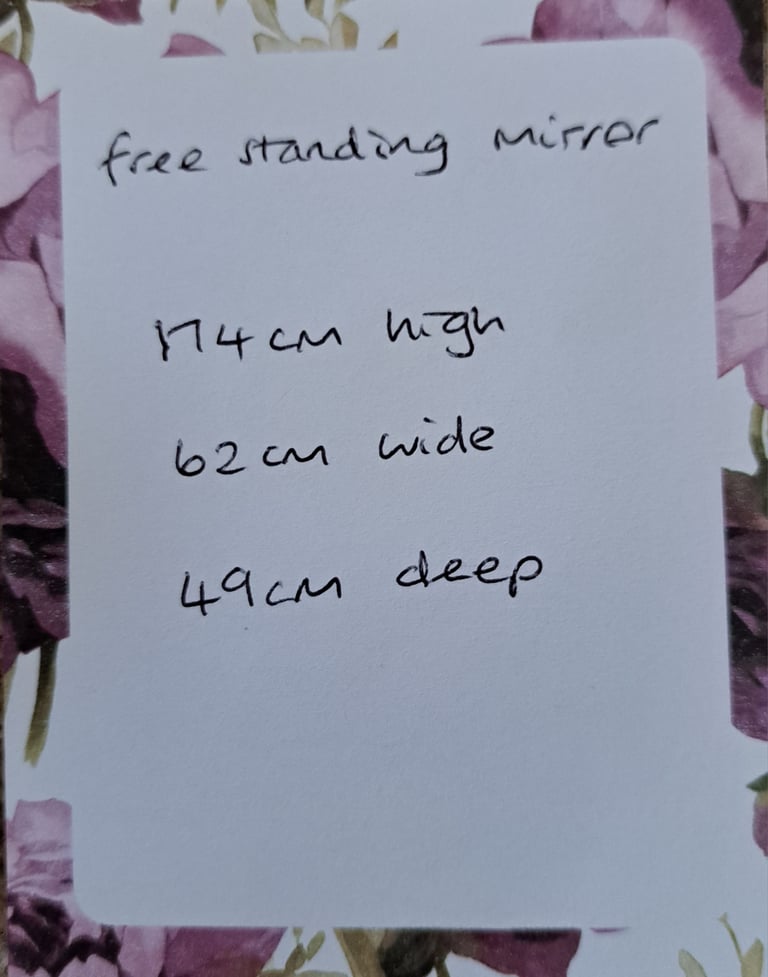 free standing mirror
174cm high
62cm wide
49cm deep